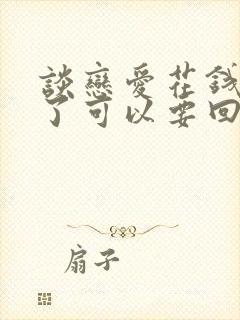 談戀愛花錢
了可以要回
扇子